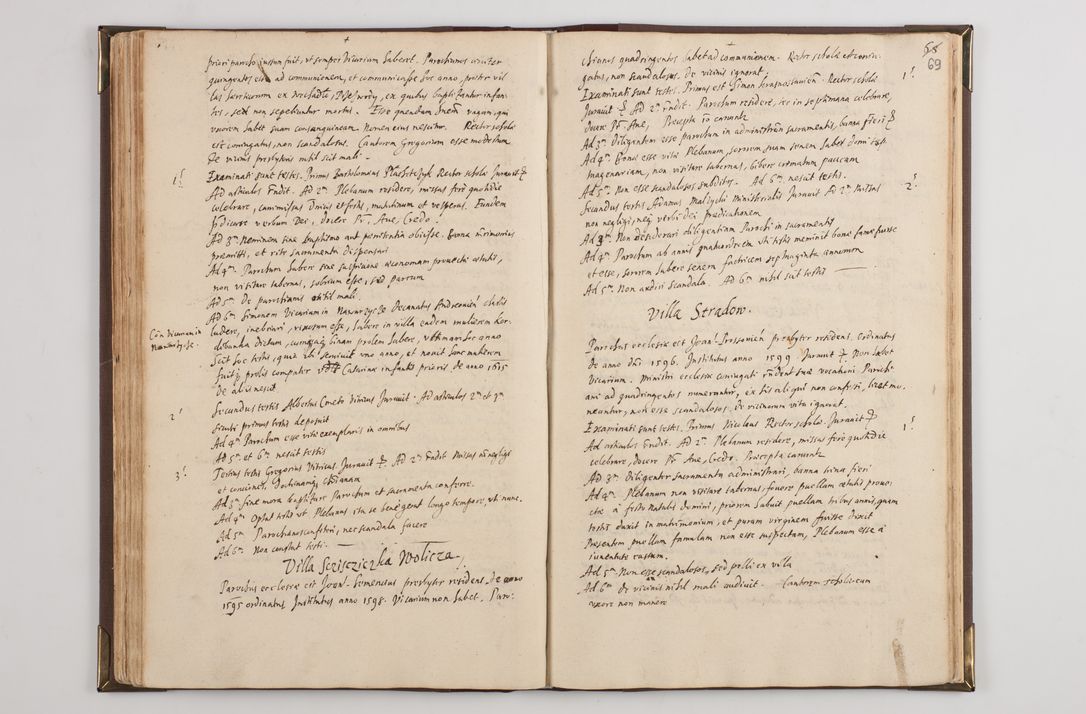 priori parocho iussum fuit, ut semper Vicarium haberet. Parochianos circiter
quingentos esse ad communionem, et communicasse hoc anno, praeter vil-
las haereticorum ex quibus baptizantur infan-
tes, sed non sepeliuntur mortui. Esse quendam vagum, qui
uxorem habet suam consanguineam. Nomen eius nescitur. Rector scholae
est coniugatus, non scandalosus. Cantorem Gregorium esse modestum
De vicinis presbyteris nihil scit mali.
1. Examinati sunt testes. Primus Bartholomaeus Rector scholae Juravit
Ad articulos Rndit. Ad 2m Plebanum residere, missas fere quotidie
celebrare, omnibus diebus festis, matutinum et vesperas. Eundem
praedicare verbum Dei, docere Pr. Ave, Credo.
Ad 3m Neminem sine baptismo aut penitentia obiisse. Banna matrimonii
praemitti, et rite sacramenta dispensari
Ad 4m Parochum habere sine suspicione oeconomam provectae aetatis,
non visitare tabernas, sobrium esse, sed parcum
Ad 5m De parochianis nihil mali.
Ad 6m Simonem Vicarium in Nawarzyce Decanatus Andreovien chartis
Con Vicarium in
Nawarzyce.
ludere, inebriari, rixosum esse, habere in villa eadem mulierem Kor-
dibanka dictam, cumque binam prolem habere, utramque hoc anno
Scit hoc testis, quia ibi servivit uno anno, et novit hanc mulierem
fuit proles computer Catharinae infantis prioris de anno 1615
De aliis nescit
2. Secundus testis Albertus Cmeto Vitricus Juravit. Ad articulos 2m et 3m
sicuti primus testis deposuit
Ad 4m Parochum esse vitae exemplaris in omnibus
Ad 5m et 6m nescit testis
3. Tertius testis Gregorius Vitricus. Juravit. Ad 2m Rndit Missas non negligi
et conciones, Doctrinamque Christianam
Ad 3m sine mora baptizare Parochum et sacramenta conferre.
Ad 4m Optat testis ut Plebanus ita se bene gerat longo tempore, ut nunc.
Ad 5m Parochianos confiteri, nec scandala facere
Ad 6m Non constat testi.
Villa Sciscziczka Wolicza.
Parochus ecclesiae est Joan. Simenius presbyter residens, de anno
1595 ordinatus Institutus anno 1598. Vicarium non habet. Paro-
68
69
chianos quadringentos habet ad communionem. Rector scholae est coniu-
gatus, non scandalosus. De vicinis ignorat.
1. Examinati sunt testes. Primus est Simon Krasnostavien. Rector scholae
Juravit. Ad 2m Rndit. Parochum residere, ter in septimana celebrare,
docere Pr. Ave, Praecepta non canuntur
Ad 3m Diligentem esse parochum in administratione sacramentorum, banna fieri
Ad 4m Bonae esse vitae Plebanum, sororem suam senem habet domi septu-
magenariam, non visitare tabernas, bibere crematum paucum
Ad 5m Non esse scandalosos subditos. Ad 6m nescit testis.
2. Secundus testis Adamus Malzycki Ministerialis Juravit Ad 2m Missas
non negligi, neque verbi Dei praedicationem
Ad 3m Non desiderari diligentiam Parochi in sacramentis
Ad 4m Parochum ab annis quatuordecim uti testis meminit bonae famae fuisse
et esse, sororem habere senem factricem septuaginta annorum
Ad 5m Non audiri scandala. Ad 6m nihil scit testis
Villa Stradow.
Parochus ecclesiae est Joan. presbyter residens. Ordinatus
de anno dni 1596. Institutus anno 1599 Juravit. Non habet
Vicarium. Ministri ecclesiae coniugati respondent suae vocationi. Parochi-
ani ad quadringentos numerantur, ex his aliqui non confessi, licet mo-
neantur, non esse scandalosos. De vicinorum vita ignorat.
1. Examinati sunt testes. Primus Nicolaus Rector scholae. Juravit
Ad articulos Rndit. Ad 2m Plebanum residere, missas fere quotidie
celebrare, docere Pr. Ave, Credo. Praecepta canuntur
Ad 3m Diligenter sacramenta administrari, banna trina fieri
Ad 4m Plebanum non visitare tabernas, fovere puellam aetatis provec-
tae a festo Natalis Domini, priorem habuit puellam tribus annis, quam
testis duxit in matrimonium, et puram virginem fuisse dixit
Praesentem puellam famulam non esse suspectam, Plebanum esse a
iuventute castum.
Ad 5m Non esse scandalosos, sed pelli ex villa
Ad 6m de vicinis nihil mali audivit. Cantorem scholae cum
uxore non manere